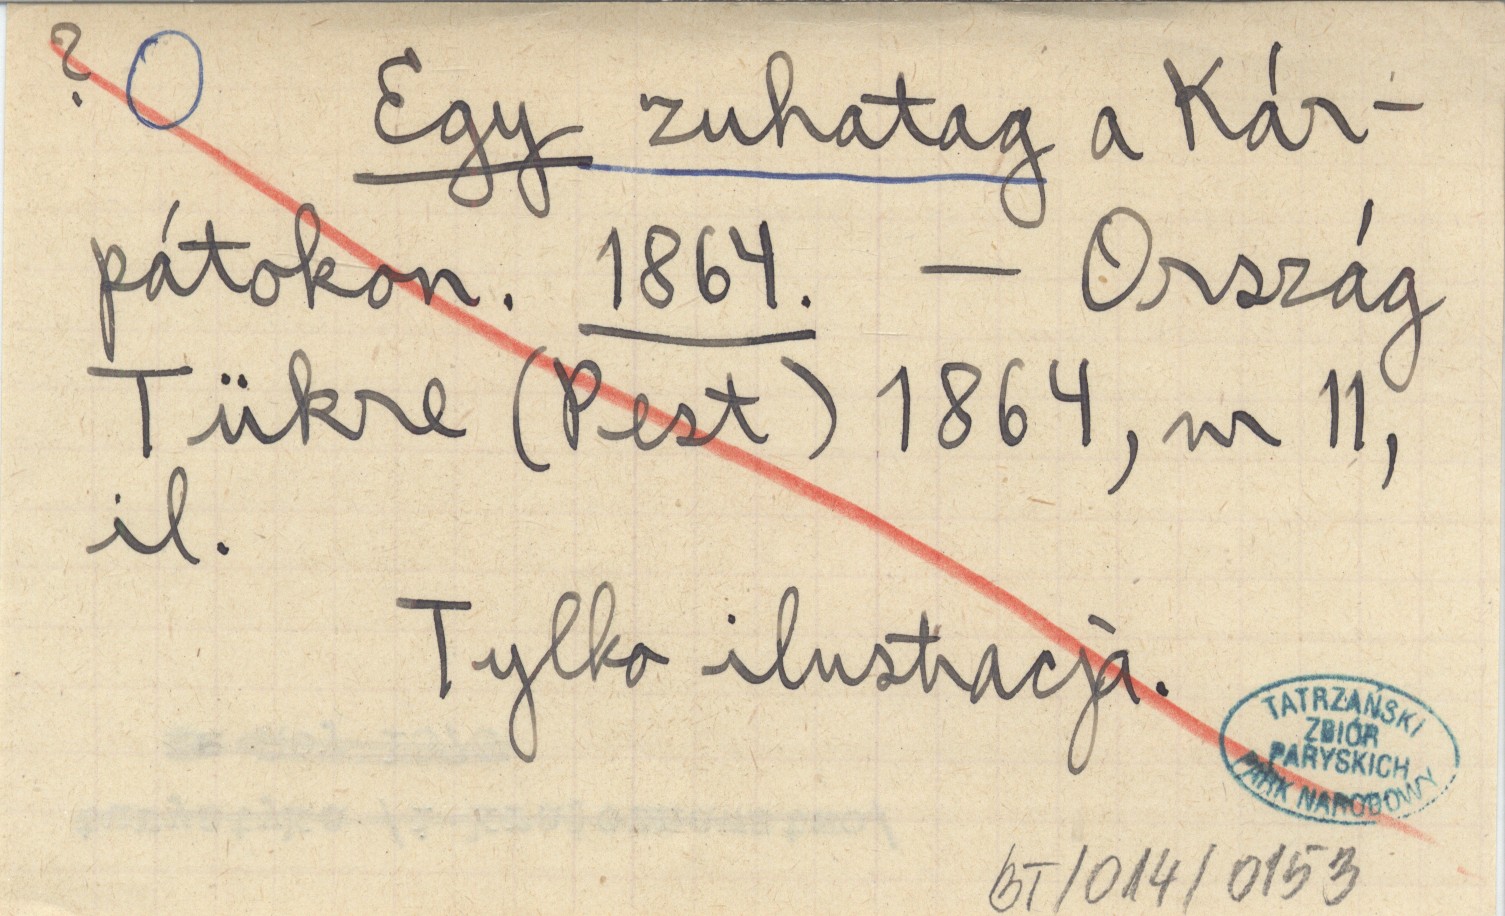 ?
Egy zuhatag a Kár-
pátokon. 1864. — Ország
Tükre (Pest) 1864, nr 11,
il.
Tylko ilustracja.
TATRZAŃSKI
ZBIÓR
PARYSKICH
PARK NARODOWY
BT/014/0153